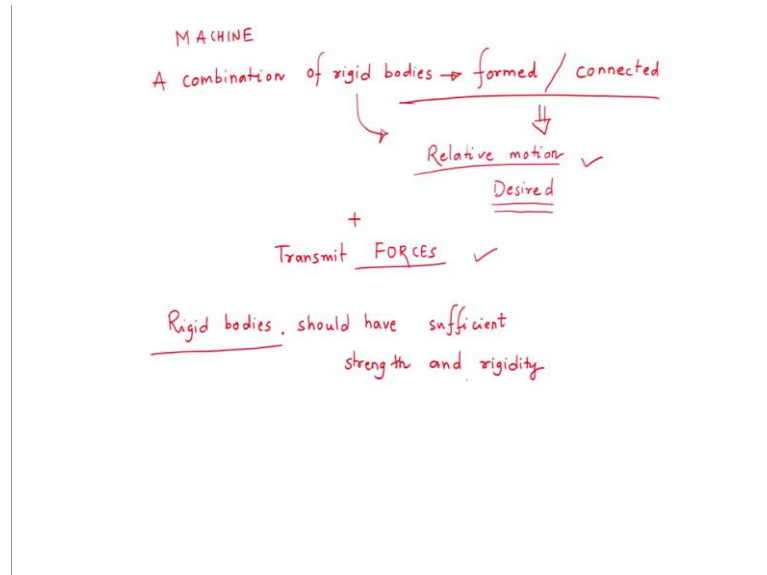 MACHINE
A combination of rigid bodies → formed / connected
Relative motion ✓
Desired
+
Transmit FORCES ✓
Rigid bodies. should have sufficient
strength and rigidity